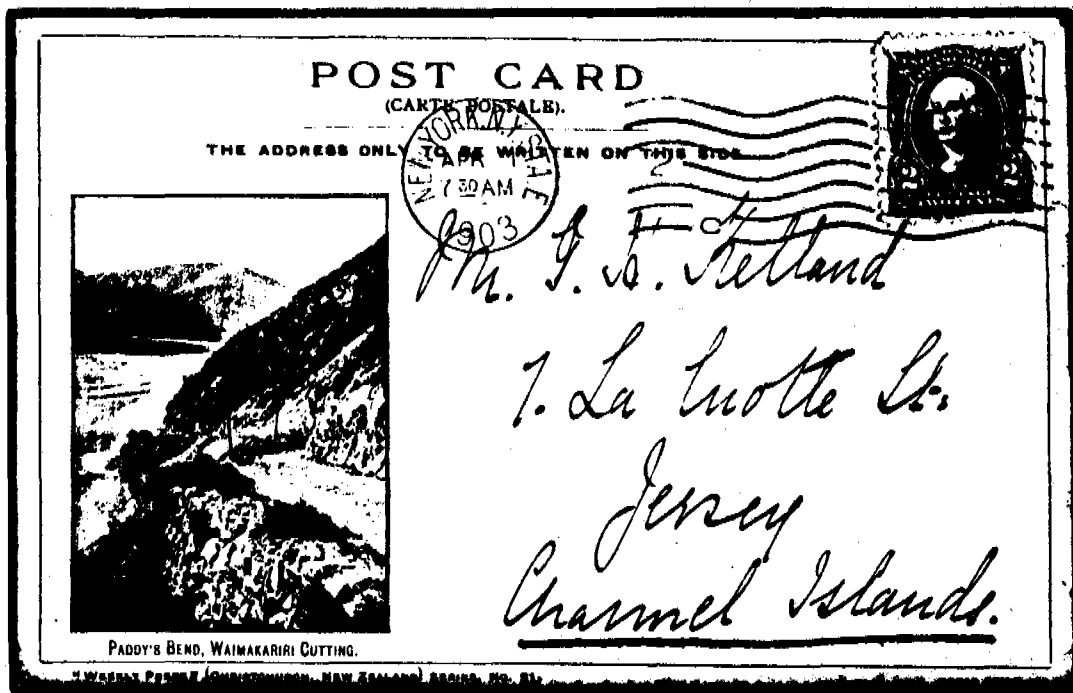 POST CARD
(CARTE POSTALE).
THE ADDRESS ONLY TO BE WRITTEN ON THIS SIDE
NEW YORK, N.Y.
APR
7 30 AM
1903
2 2
Mr. G. A. Kelland
7. La Motte St.
Jersey
Channel Islands.
PADDY'S BEND, WAIMAKARIRI CUTTING.
"WEEKLY PRESS" (CHRISTCHURCH, NEW ZEALAND) SERIES, NO. 51.